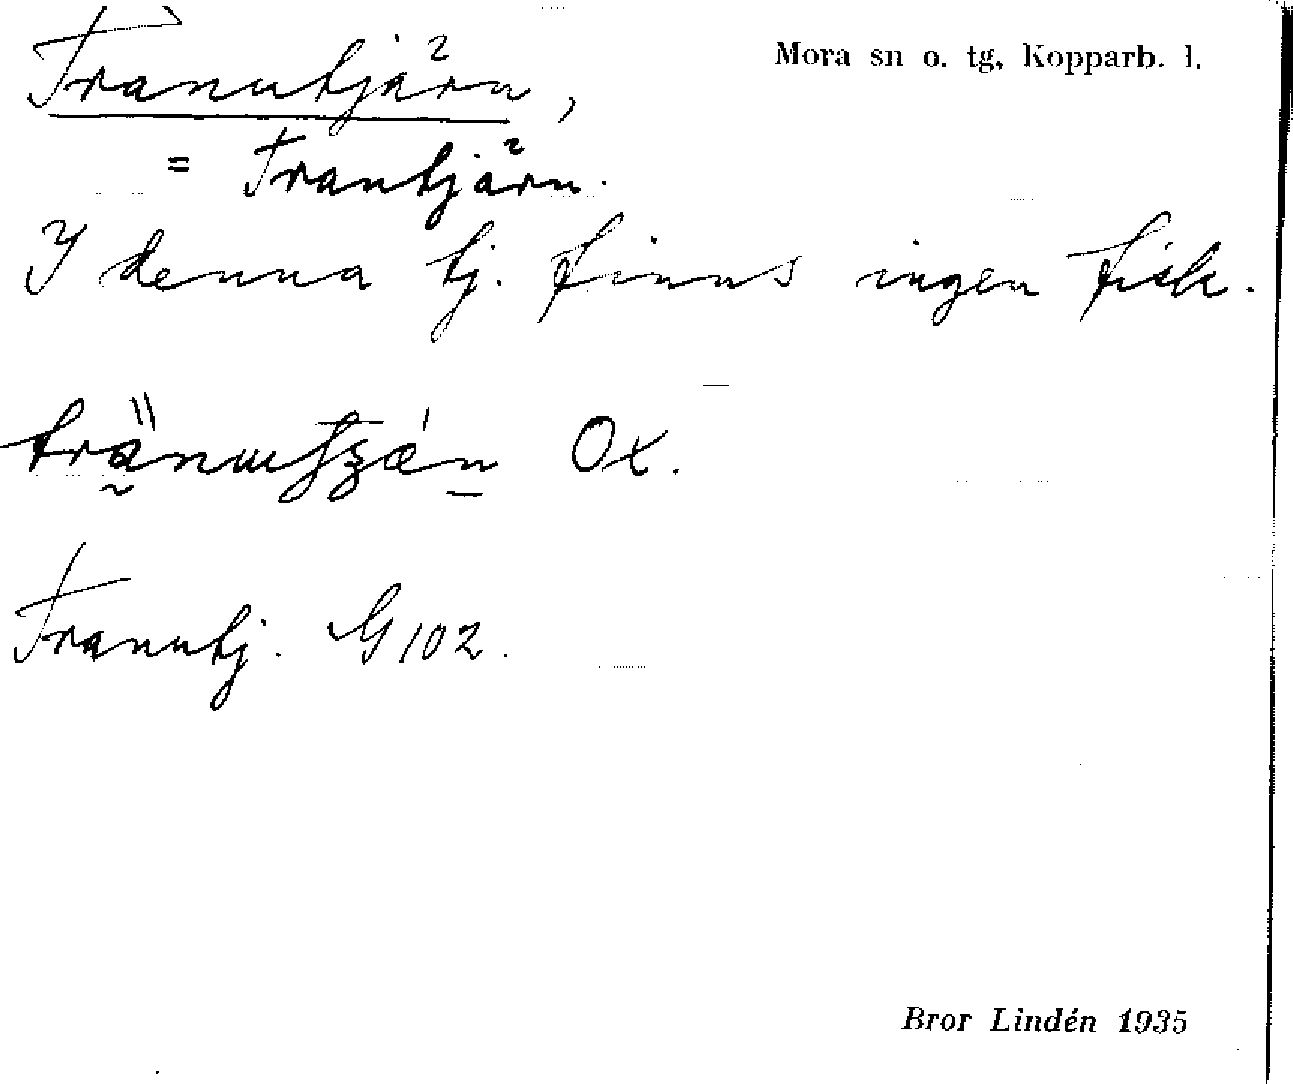 Tranutjärn,
Mora sn o. tg, Kopparb. l.
= Trantjärn.
I denna tj. finns ingen fisk.
Ox.
Tranutj. G 102.
Bror Lindén 1935